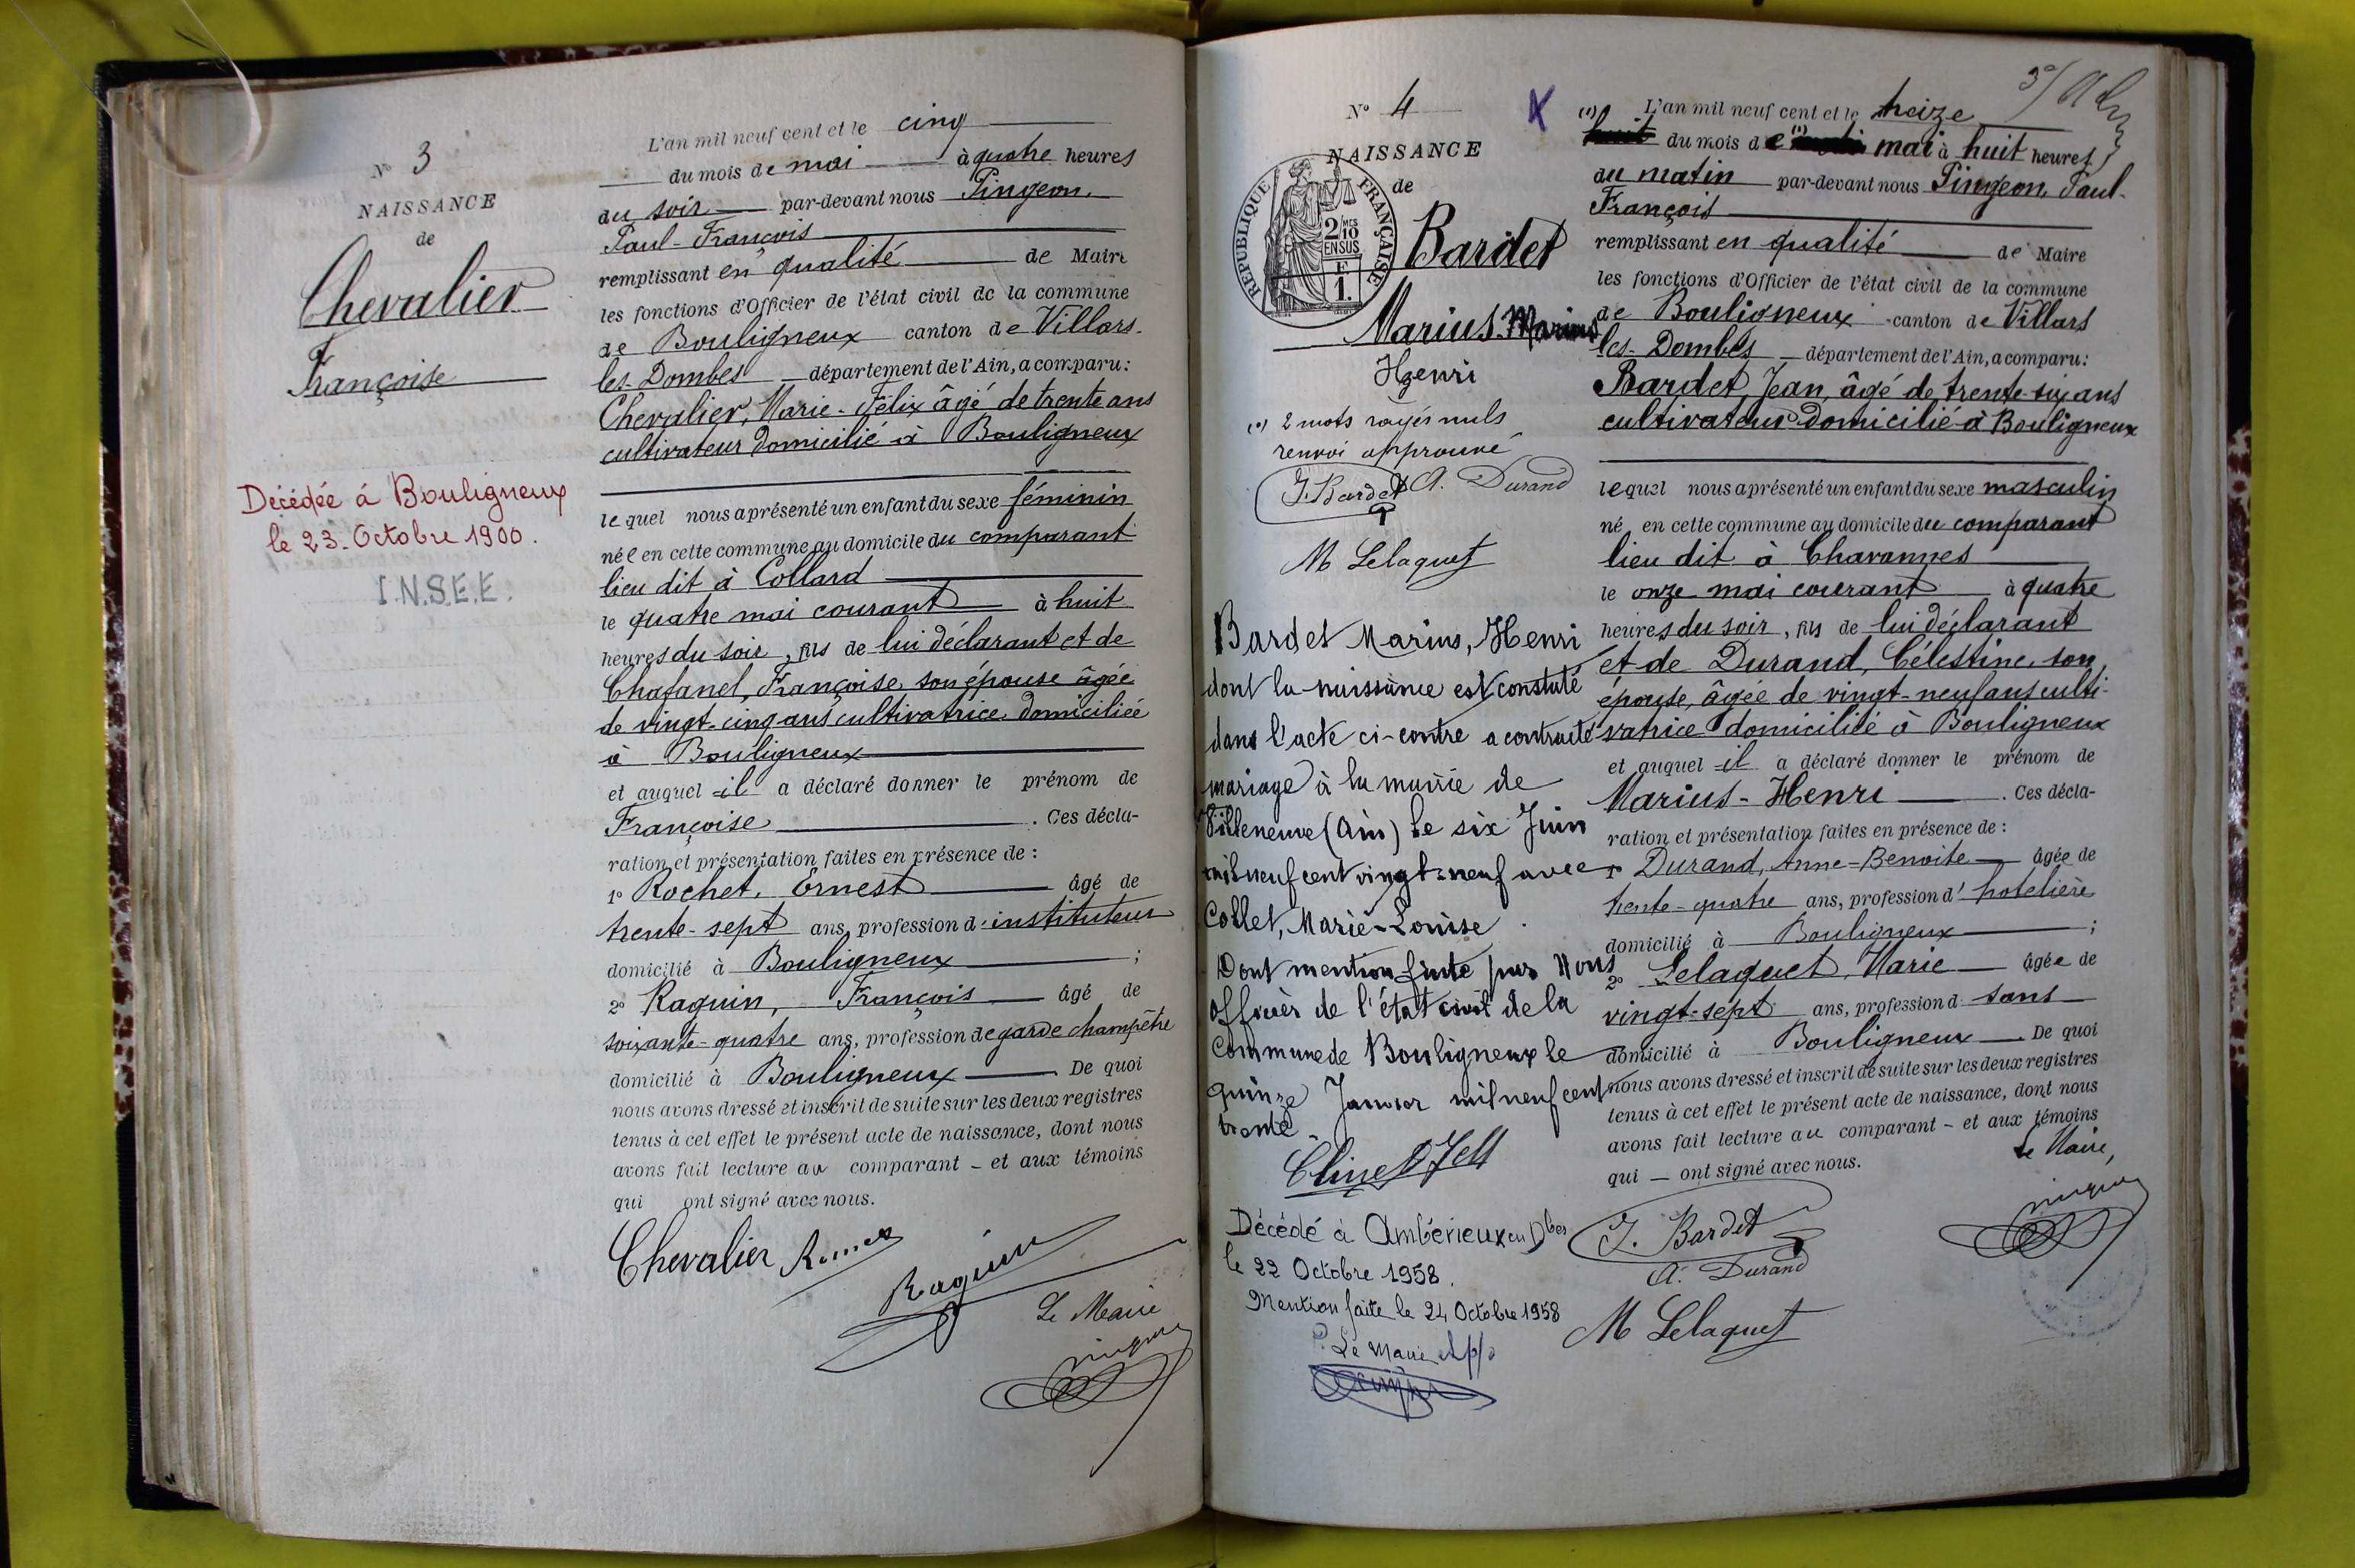 N° 3
NAISSANCE
de
Chevalier
Françoise
Décédée à Bouligneux
le 23. Octobre 1900.
I.N.S.E.E.
L'an mil neuf cent et le cinq
du mois de mai à quatre heures
du soir par-devant nous Pingeon,
Paul-François
remplissant en qualité de Maire
les fonctions d'Officier de l'état civil de la commune
de Bouligneux canton de Villars-
les-Dombes département de l'Ain, a comparu:
Chevalier, Marie-Félix âgé de trente ans
cultivateur domicilié à Bouligneux
lequel nous a présenté un enfant du sexe féminin
née en cette commune au domicile du comparant
lieu dit à Collard
le quatre mai courant à huit
heures du soir, fils de lui déclarant et de
Chafanel, Françoise, son épouse âgée
de vingt-cinq ans cultivatrice domiciliée
à Bouligneux
et auquel il a déclaré donner le prénom de
Françoise. Ces décla-
ration et présentation faites en présence de :
1° Rochet, Ernest âgé de
trente-sept ans, profession d'instituteur
domicilié à Bouligneux ;
2° Raquin, François âgé de
soixante-quatre ans, profession de garde champêtre
domicilié à Bouligneux De quoi
nous avons dressé et inscrit de suite sur les deux registres
tenus à cet effet le présent acte de naissance, dont nous
avons fait lecture au comparant - et aux témoins
qui ont signé avec nous.
Chevalier
Raquin
Le Maire
N° 4
NAISSANCE
de
REPUBLIQUE FRANÇAISE
2/10 MES
EN SUS
F
1.
Bardet
Marius-Marius
Henri
(1) 2 mots rayés nuls
renvoi approuvé
J. Bardet A. Durand
M Lelaquet
Bardet Marius, Henri
dont la naissance est constaté
dans l'acte ci-contre a contracté
mariage à la mairie de
Villeneuve (Ain) le six Juin
mil neuf cent vingt-neuf avec
Collet, Marie-Louise.
Dont mention faite par Nous
officier de l'état civil de la
Commune de Bouligneux le
quinze Janvier mil neuf cent
trente.
Décédé à Ambérieux en Dbes
le 22 Octobre 1958.
Mention faite le 24 Octobre 1958
Le Maire
(1) L'an mil neuf cent et le treize
huit du mois de (1) mai à huit heures
du matin par-devant nous Pingeon, Paul-
François
remplissant en qualité de Maire
les fonctions d'Officier de l'état civil de la commune
de Bouligneux canton de Villars
les-Dombes département de l'Ain, a comparu:
Bardet, Jean, âgé de trente-six ans
cultivateur domicilié à Bouligneux
lequel nous a présenté un enfant du sexe masculin
né en cette commune au domicile du comparant
lieu dit à Chavannes
le onze mai courant à quatre
heures du soir, fils de lui déclarant
et de Durand, Célestine, son
épouse, âgée de vingt-neuf ans culti-
vatrice domiciliée à Bouligneux
et auquel il a déclaré donner le prénom de
Marius-Henri. Ces décla-
ration et présentation faites en présence de :
1° Durand, Anne-Benoite âgée de
trente-quatre ans, profession d'hotelière
domicilié à Bouligneux ;
2° Lelaquet, Marie âgée de
vingt-sept ans, profession d sans
domicilié à Bouligneux. De quoi
nous avons dressé et inscrit de suite sur les deux registres
tenus à cet effet le présent acte de naissance, dont nous
avons fait lecture au comparant - et aux témoins
qui - ont signé avec nous.
Le Maire,
J. Bardet
A. Durand
M Lelaquet